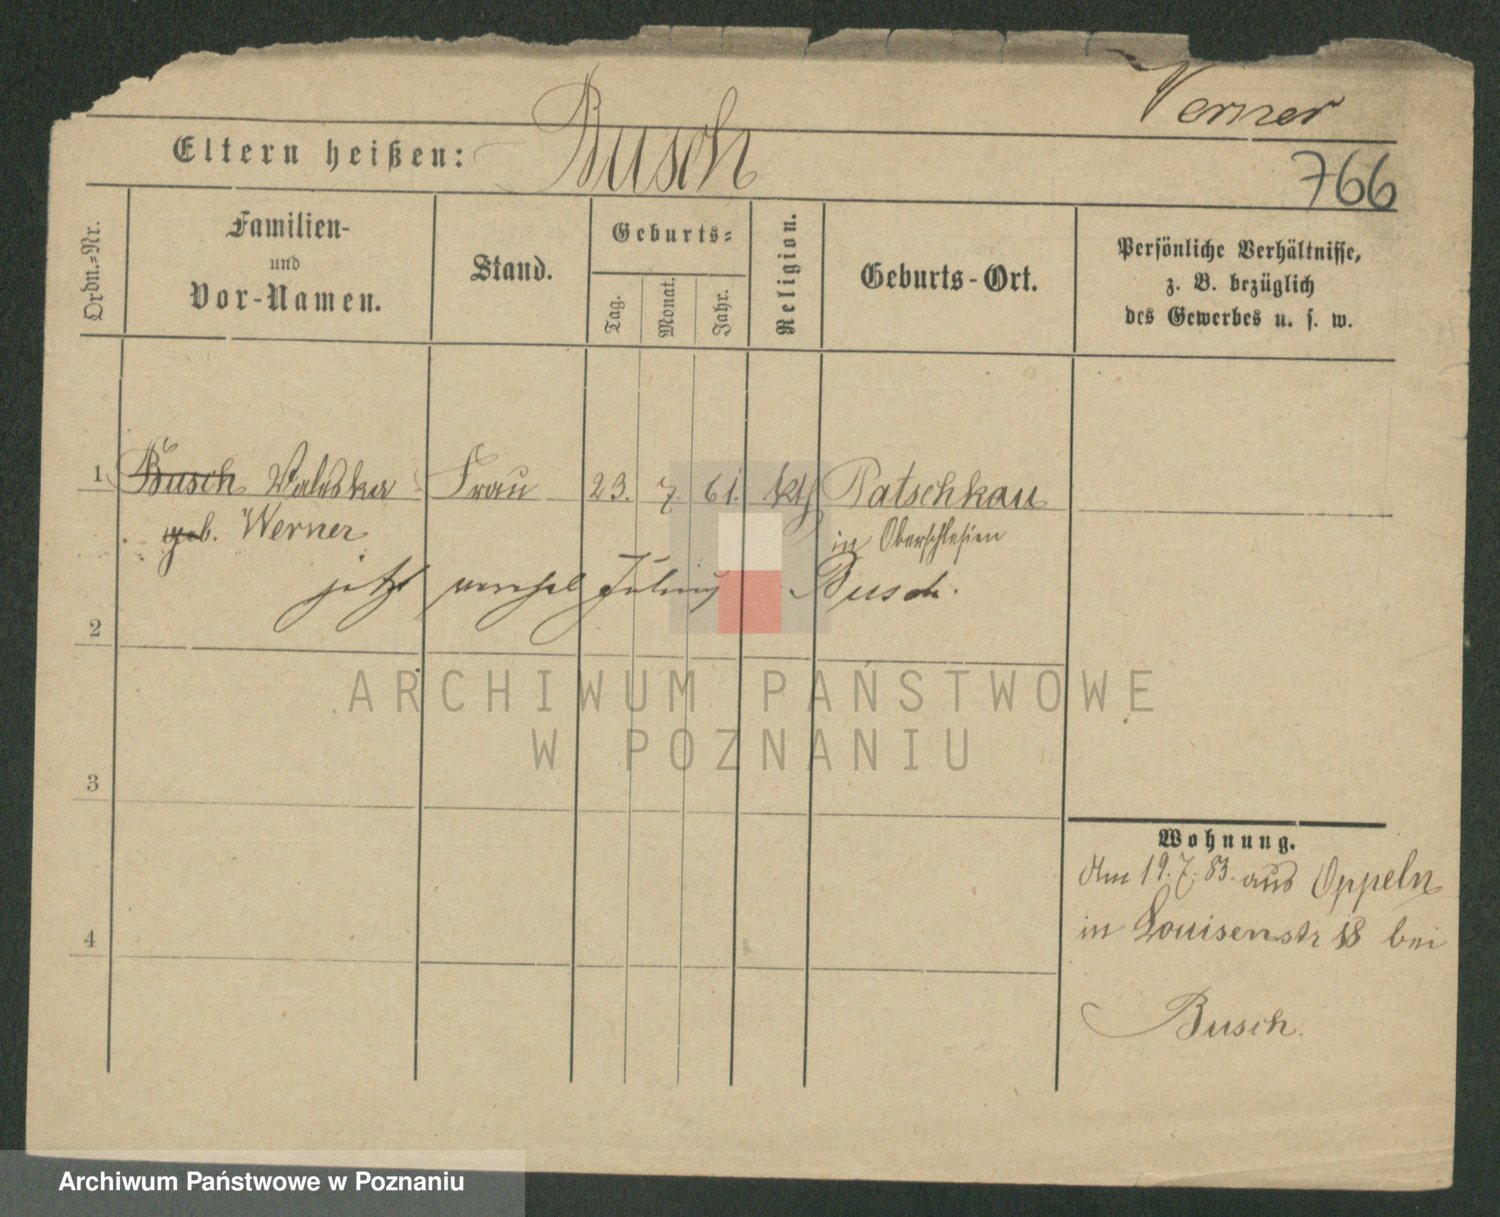 Werner
Eltern heißen: Busch
766
Ordn.=Nr.
Familien-
und
Vor-Namen.
Stand.
Geburts=
Tag.
Monat.
Jahr.
Religion.
Geburts-Ort.
Persönliche Verhältnisse,
z. B. bezüglich
des Gewerbes u. s. w.
1 Busch Valeska Frau 23. 7. 61. kth Patschkau
geb. Werner in Oberschlesien
jetzt verehel Julius Busch.
2
ARCHIWUM PAŃSTWOWE
W POZNANIU
3
Wohnung.
Am 19.7.83. aus Oppeln
in Louisenstr 18 bei
4
Busch.
Archiwum Państwowe w Poznaniu